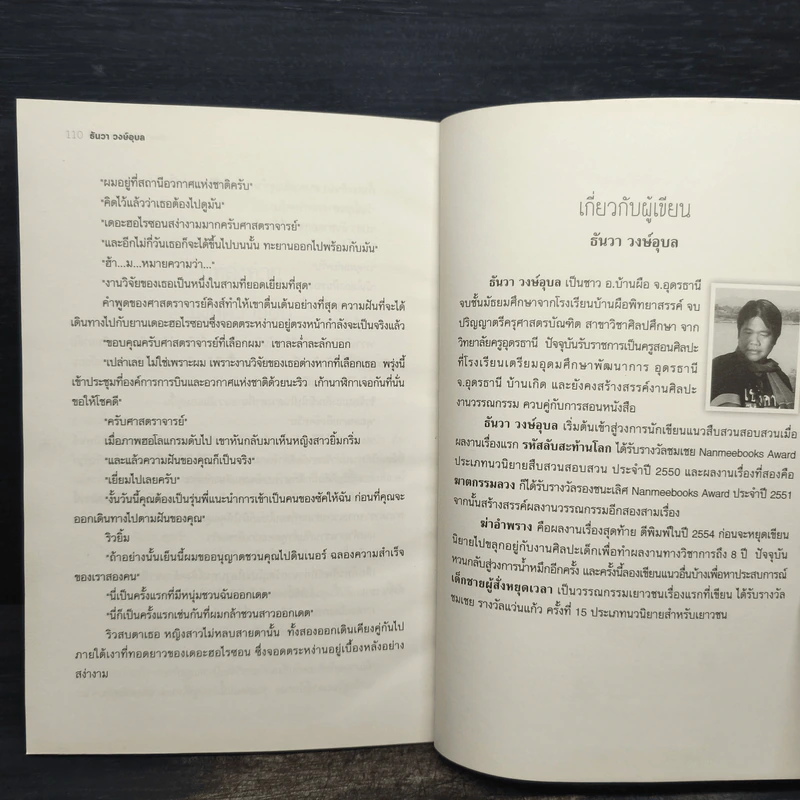 110 ธันวา วงษ์อุบล
"ผมอยู่ที่สถานีอวกาศแห่งชาติครับ"
"คิดไว้แล้วว่าเธอต้องไปดูมัน"
"เดอะฮอไรซอนสง่างามมากครับศาสตราจารย์"
"และอีกไม่กี่วันเธอก็จะได้ขึ้นไปบนนั้น ทะยานออกไปพร้อมกับมัน"
"ฮ้า...ม...หมายความว่า..."
"งานวิจัยของเธอเป็นหนึ่งในสามที่ยอดเยี่ยมที่สุด"
คำพูดของศาสตราจารย์คิงส์ทำให้เขาตื่นเต้นอย่างที่สุด ความฝันที่จะได้
เดินทางไปกับยานเดอะฮอไรซอนซึ่งจอดตระหง่านอยู่ตรงหน้ากำลังจะเป็นจริงแล้ว
"ขอบคุณครับศาสตราจารย์ที่เลือกผม" เขาละล่ำละลักบอก
"เปล่าเลย ไม่ใช่เพราะผม เพราะงานวิจัยของเธอต่างหากที่เลือกเธอ พรุ่งนี้
เข้าประชุมที่องค์การการบินและอวกาศแห่งชาติด้วยนะริว เก้านาฬิกาเจอกันที่นั่น
ขอให้โชคดี"
"ครับศาสตราจารย์"
เมื่อภาพฮอโลแกรมดับไป เขาหันกลับมาเห็นหญิงสาวยิ้มกริ่ม
"และแล้วความฝันของคุณก็เป็นจริง"
"เยี่ยมไปเลยครับ"
"งั้นวันนี้คุณต้องเป็นรุ่นพี่แนะนำการเข้าเป็นคนของซัคให้ฉัน ก่อนที่คุณจะ
ออกเดินทางไปตามฝันของคุณ"
ริวยิ้ม
"ถ้าอย่างนั้นเย็นนี้ผมขออนุญาตชวนคุณไปดินเนอร์ ฉลองความสำเร็จ
ของเราสองคน"
"นี่เป็นครั้งแรกที่มีหนุ่มชวนฉันออกเดต"
"นี่ก็เป็นครั้งแรกเช่นกันที่ผมกล้าชวนสาวออกเดต"
ริวสบตาเธอ หญิงสาวไม่หลบสายตานั้น ทั้งสองออกเดินเคียงคู่กันไป
ภายใต้เงาที่ทอดยาวของเดอะฮอไรซอน ซึ่งจอดตระหง่านอยู่เบื้องหลังอย่าง
สง่างาม
เกี่ยวกับผู้เขียน
ธันวา วงษ์อุบล
ธันวา วงษ์อุบล เป็นชาว อ.บ้านผือ จ.อุดรธานี
จบชั้นมัธยมศึกษาจากโรงเรียนบ้านผือพิทยาสรรค์ จบ
ปริญญาตรีครุศาสตรบัณฑิต สาขาวิชาศิลปศึกษา จาก
วิทยาลัยครูอุดรธานี ปัจจุบันรับราชการเป็นครูสอนศิลปะ
ที่โรงเรียนเตรียมอุดมศึกษาพัฒนาการ อุดรธานี
จ.อุดรธานี บ้านเกิด และยังคงสร้างสรรค์งานศิลปะ
งานวรรณกรรม ควบคู่กับการสอนหนังสือ
ธันวา วงษ์อุบล เริ่มต้นเข้าสู่วงการนักเขียนแนวสืบสวนสอบสวนเมื่อ
ผลงานเรื่องแรก รหัสลับสะท้านโลก ได้รับรางวัลชมเชย Nanmeebooks Award
ประเภทนวนิยายสืบสวนสอบสวน ประจำปี 2550 และผลงานเรื่องที่สองคือ
ฆาตกรรมลวง ก็ได้รับรางวัลรองชนะเลิศ Nanmeebooks Award ประจำปี 2551
จากนั้นสร้างสรรค์ผลงานวรรณกรรมอีกสองสามเรื่อง
ฆ่าอำพราง คือผลงานเรื่องสุดท้าย ตีพิมพ์ในปี 2554 ก่อนจะหยุดเขียน
นิยายไปขลุกอยู่กับงานศิลปะเด็กเพื่อทำผลงานทางวิชาการถึง 8 ปี ปัจจุบัน
หวนกลับสู่วงการน้ำหมึกอีกครั้ง และครั้งนี้ลองเขียนแนวอื่นบ้างเพื่อหาประสบการณ์
เด็กชายผู้สั่งหยุดเวลา เป็นวรรณกรรมเยาวชนเรื่องแรกที่เขียน ได้รับรางวัล
ชมเชย รางวัลแว่นแก้ว ครั้งที่ 15 ประเภทนวนิยายสำหรับเยาวชน